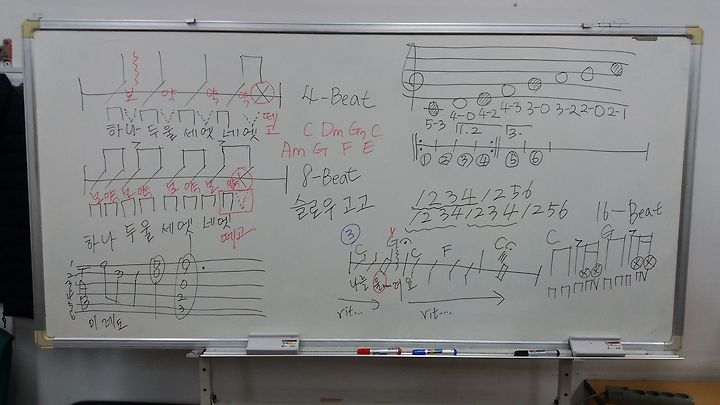 보 약 약 약
하나 두울 세엣 네엣 떼고
4-Beat
C Dm G7 C
Am G F E
보약 보약 보약 보약
8-Beat
슬로우 고고
하나 두울 세엣 네엣
떼고
1
2
3
4
5
6
0
3
0
0
2
3
미 레 도
5-3 4-0 4-2 4-3 3-0 3-2 2-0 2-1
1. 2 3.
① ② ③ ④ ⑤ ⑥
1 2 3 4 1 2 5 6
1 2 3 4 1 2 3 4 1 2 5 6
16-Beat
③
G G C F C
C G
rit... rit...